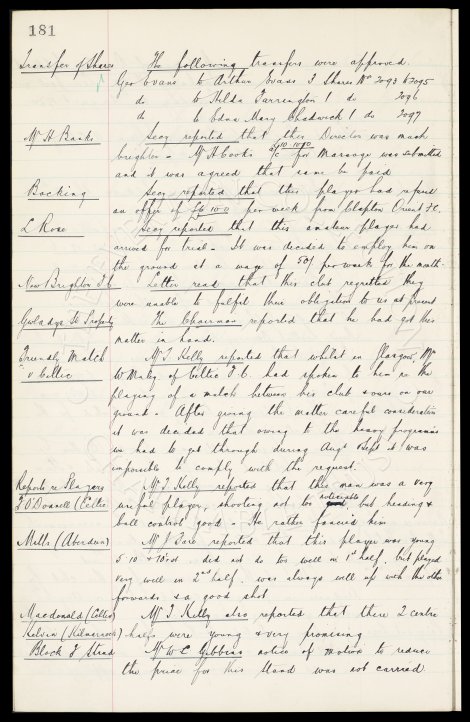 181
Transfer of Shares The following transfers were approved.
Geo Evans to Arthur Evans 3 Shares Nos 7093 to 7095
do to Hilda Farrington 1 do 7096
do to Edna Mary Chadwick 1 do 7097
Mr H Banks Secy reported that this Director was much
brighter - Mr H Cooks a/c for Massage was submitted
and it was agreed that same be paid
Bocking Secy reported that this player had refused
an offer of £4 10 0 per week from Clapton Orient F.C.
L Rose Secy reported that this amateur player had
arrived for trial - It was decided to employ him on
the ground at a wage of 50/- per week for the month.
New Brighton F.C. Letter read that this club regretted they
were unable to fulfil their obligation to us at present
Gwladys St Property The Chairman reported that he had got this
matter in hand.
Friendly Match Mr J Kelly reported that whilst in Glasgow, Mr
v Celtic W Maley of Celtic F.C. had spoken to him re the
playing of a match between his club & ours on our
ground - After giving the matter careful consideration
it was decided that owing to the heavy programme
we had to get through during Augt & Sept it was
impossible to comply with the request.
Reports re Players Mr J Kelly reported that this man was a very
F O'Donnell (Celtic) useful player, shooting not too noticeable but heading &
ball control good - He rather fancied him
Mills (Aberdeen) Mr J Sare reported that this player was young
5 10 & did not do too well in 1st half, but played
very well in 2nd half. was always well up with the other
forwards & a good shot
Macdonald (Celtic) Mr J Kelly also reported that these 2 centre
Kelvin (Kilmarnock) halfs were young & very promising
Block F Stand Mr W C Gibbins notice of motion to reduce
the price for this Stand was not carried